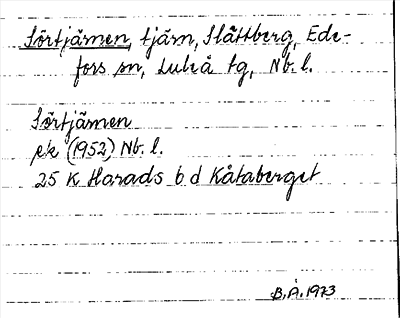 Sörtjärnen, tjärn, Slåttberg, Ede-
fors sn, Luleå tg, Nb. l.
Sörtjärnen
ek (1952) Nb. l.
25 K Harads b d Kåtaberget
B.Å. 1973